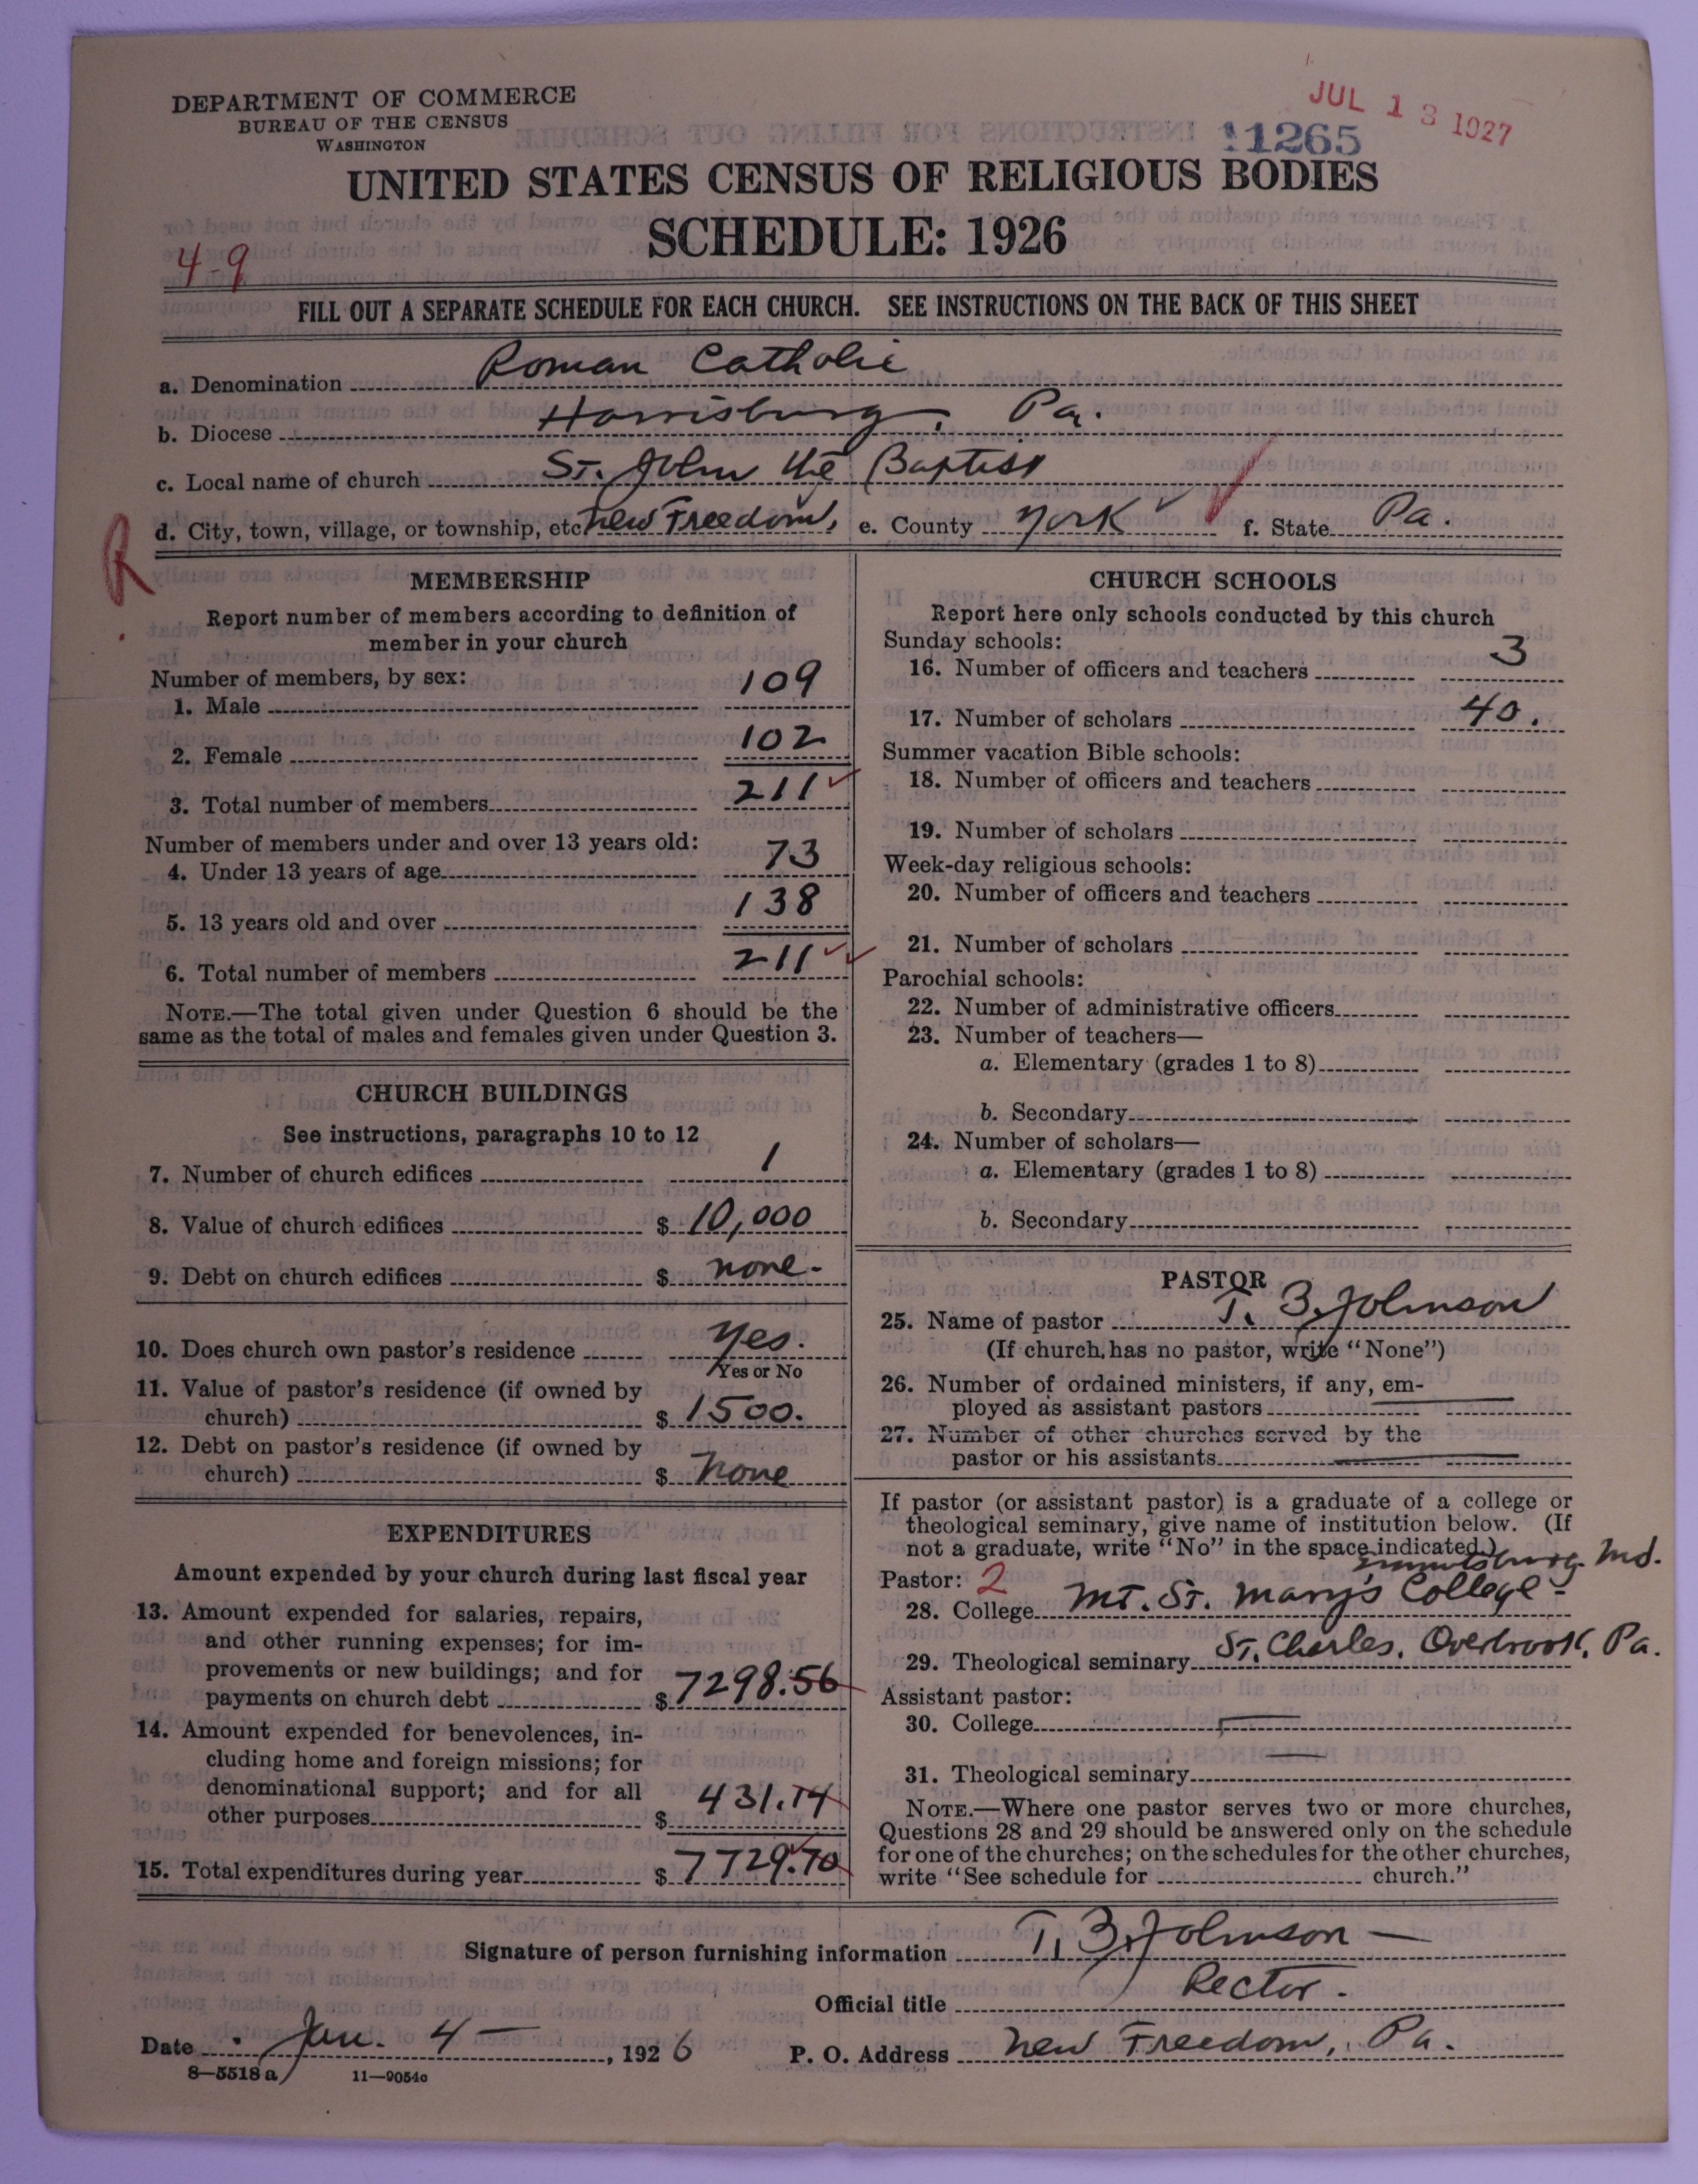 JUL 13 1927
11265
DEPARTMENT OF COMMERCE
BUREAU OF THE CENSUS
WASHINGTON
UNITED STATES CENSUS OF RELIGIOUS BODIES
SCHEDULE: 1926
4-9
FILL OUT A SEPARATE SCHEDULE FOR EACH CHURCH. SEE INSTRUCTIONS ON THE BACK OF THIS SHEET
a. Denomination Roman Catholic
b. Diocese Harrisburg, Pa.
c. Local name of church St. John the Baptist
d. City, town, village, or township, etc. New Freedom, e. County York f. State Pa.
R
MEMBERSHIP
Report number of members according to definition of
member in your church
Number of members, by sex:
1. Male 109
2. Female 102
3. Total number of members 211
Number of members under and over 13 years old:
4. Under 13 years of age 73
5. 13 years old and over 138
6. Total number of members 211
NOTE.—The total given under Question 6 should be the
same as the total of males and females given under Question 3.
CHURCH BUILDINGS
See instructions, paragraphs 10 to 12
7. Number of church edifices 1
8. Value of church edifices $ 10,000
9. Debt on church edifices $ none-
10. Does church own pastor's residence Yes.
Yes or No
11. Value of pastor's residence (if owned by
church) $ 1500.
12. Debt on pastor's residence (if owned by
church) $ None
EXPENDITURES
Amount expended by your church during last fiscal year
13. Amount expended for salaries, repairs,
and other running expenses; for im-
provements or new buildings; and for
payments on church debt $ 7298.56
14. Amount expended for benevolences, in-
cluding home and foreign missions; for
denominational support; and for all
other purposes $ 431.14
15. Total expenditures during year $ 7729.70
CHURCH SCHOOLS
Report here only schools conducted by this church
Sunday schools:
16. Number of officers and teachers 3
17. Number of scholars 40.
Summer vacation Bible schools:
18. Number of officers and teachers
19. Number of scholars
Week-day religious schools:
20. Number of officers and teachers
21. Number of scholars
Parochial schools:
22. Number of administrative officers
23. Number of teachers—
a. Elementary (grades 1 to 8)
b. Secondary
24. Number of scholars—
a. Elementary (grades 1 to 8)
b. Secondary
PASTOR
25. Name of pastor T. B. Johnson
(If church has no pastor, write "None")
26. Number of ordained ministers, if any, em-
ployed as assistant pastors
27. Number of other churches served by the
pastor or his assistants
If pastor (or assistant pastor) is a graduate of a college or
theological seminary, give name of institution below. (If
not a graduate, write "No" in the space indicated.)
Emmitsburg. Md.
Pastor: 2
28. College Mt. St. Mary's College-
29. Theological seminary St. Charles, Overbrook, Pa.
Assistant pastor:
30. College
31. Theological seminary
NOTE.—Where one pastor serves two or more churches,
Questions 28 and 29 should be answered only on the schedule
for one of the churches; on the schedules for the other churches,
write "See schedule for church."
Signature of person furnishing information T. B. Johnson —
Official title Rector.
Date Jan. 4 — , 1926 P. O. Address New Freedom, Pa.
8—5518 a 11—9054a